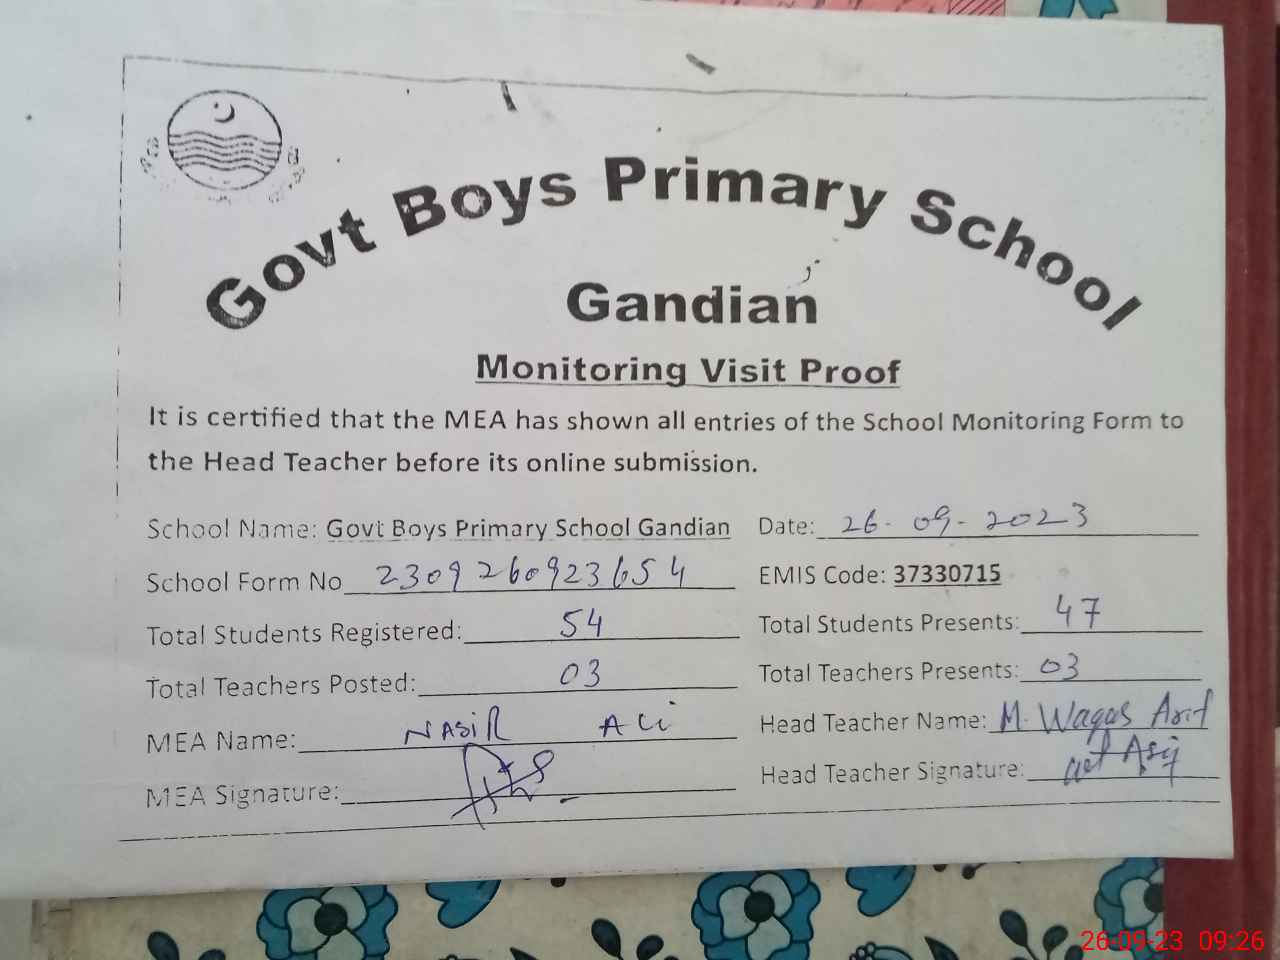 Govt Boys Primary School
Gandian
Monitoring Visit Proof
It is certified that the MEA has shown all entries of the School Monitoring Form to
the Head Teacher before its online submission.
School Name: Govt Boys Primary School Gandian Date: 26-09-2023
School Form No 2309260923654 EMIS Code: 37330715
Total Students Registered: 54 Total Students Presents: 47
Total Teachers Posted: 03 Total Teachers Presents: 03
MEA Name: NASIR ALi Head Teacher Name: M. Waqas Arif
MEA Signature: Head Teacher Signature:
26-09-23 09:26